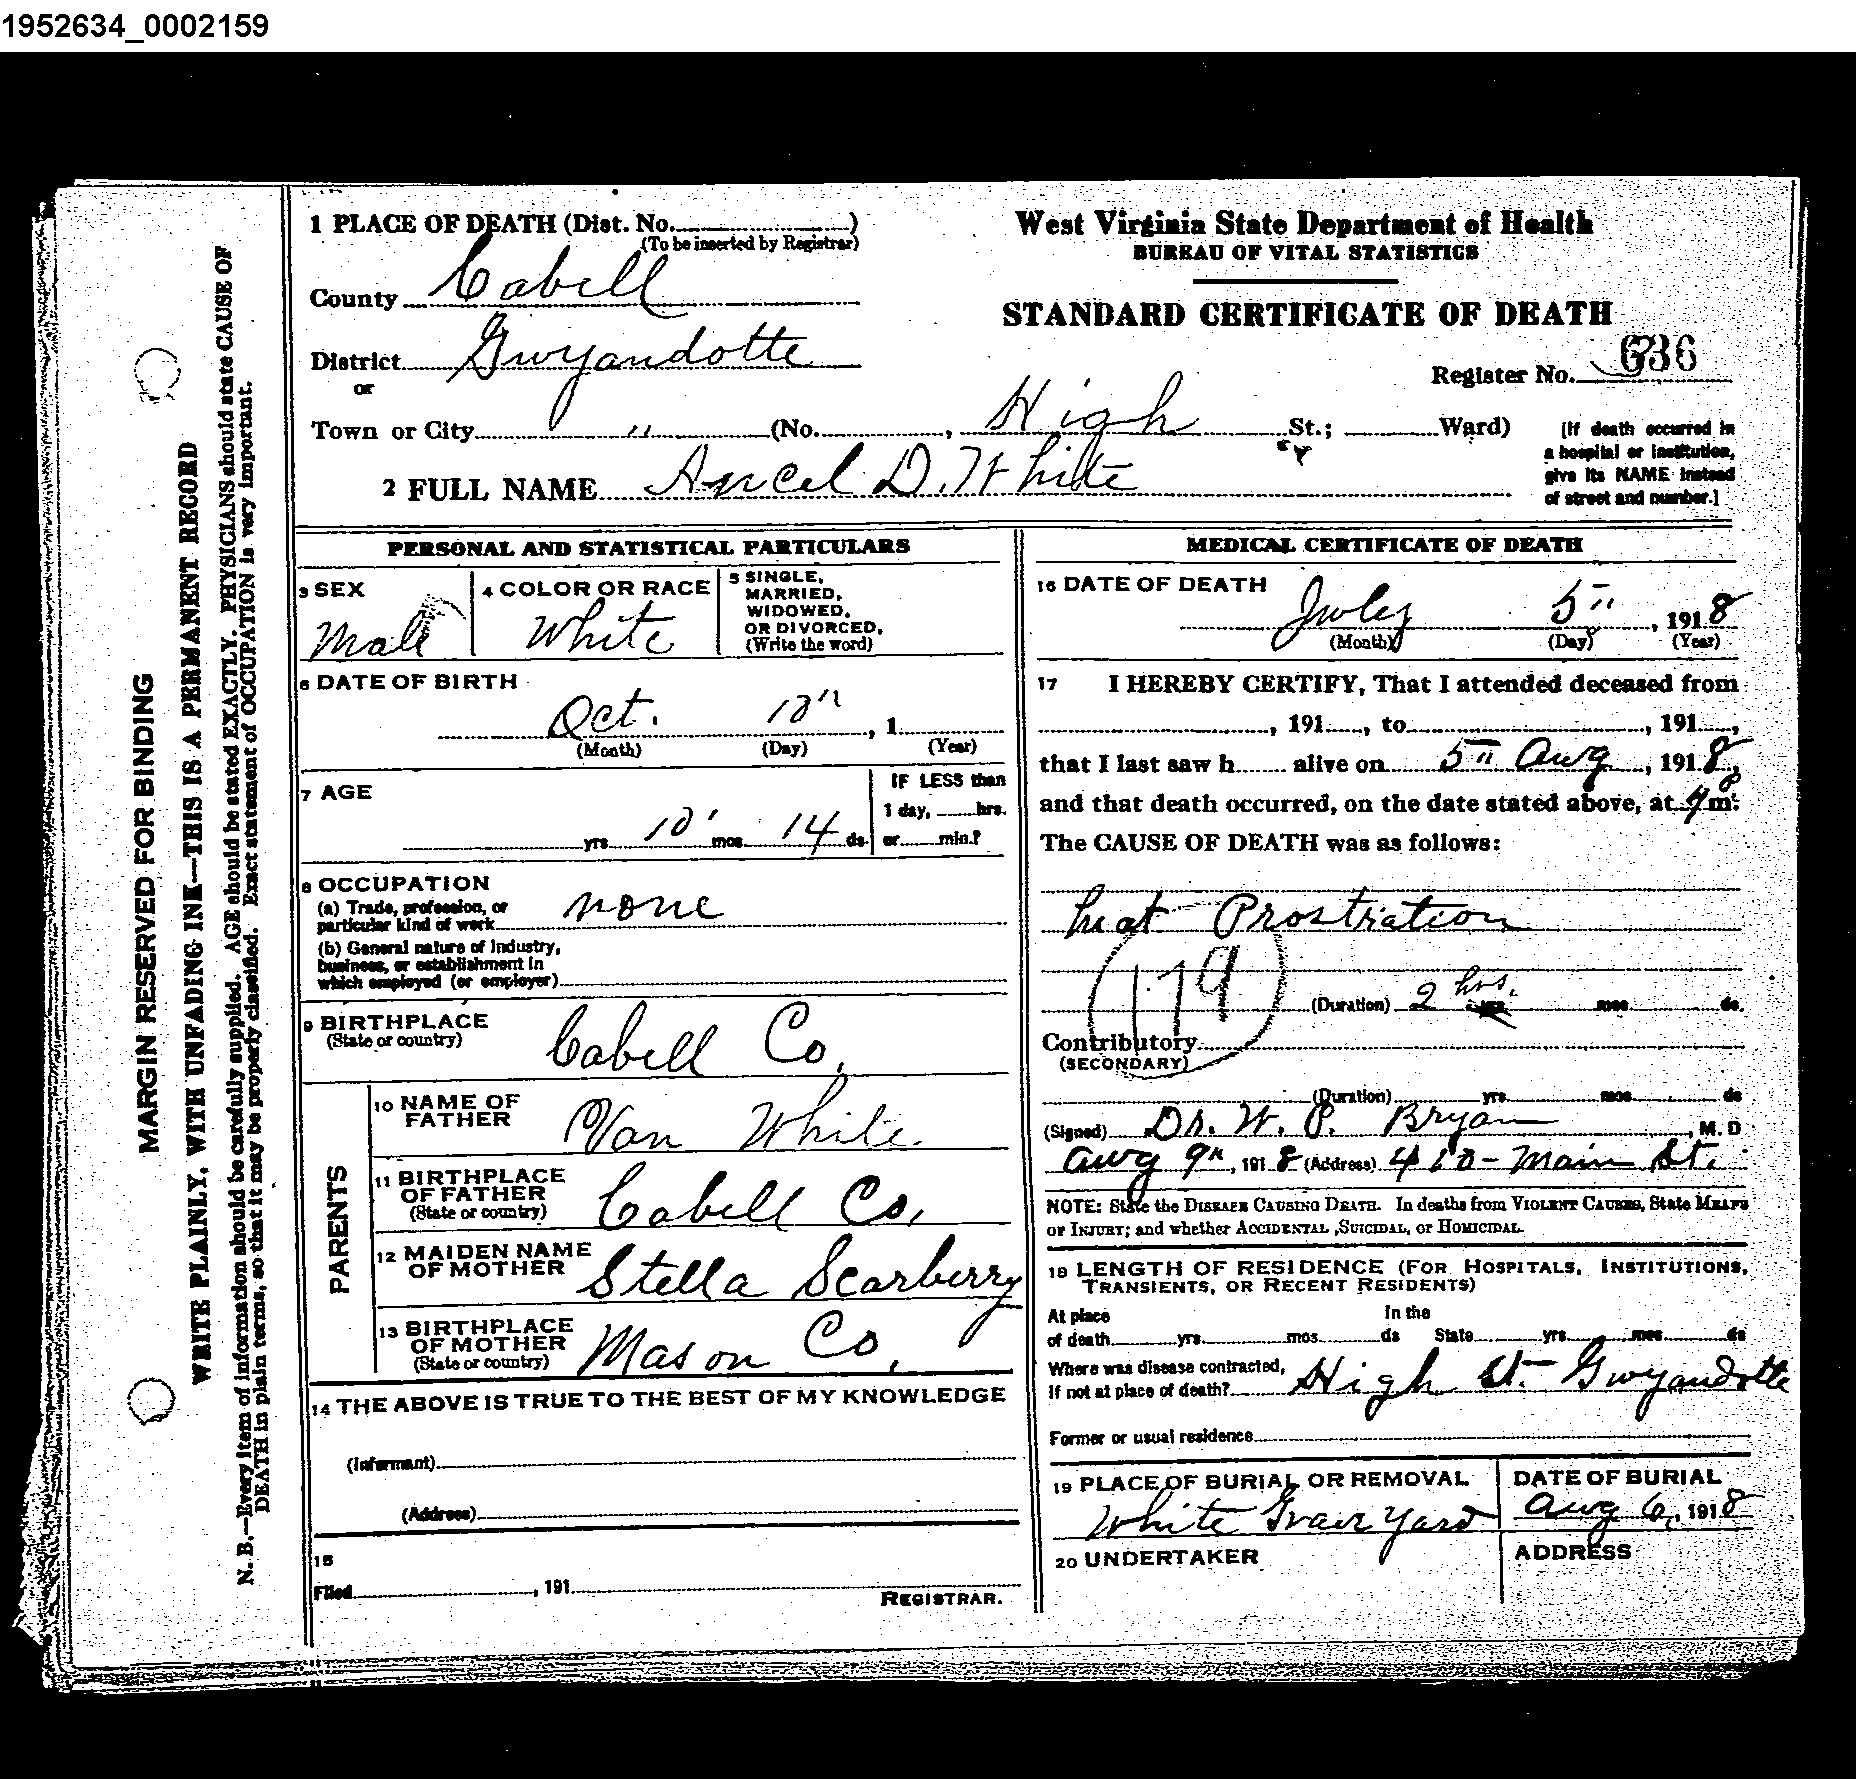 1952634_0002159
MARGIN RESERVED FOR BINDING
WRITE PLAINLY, WITH UNFADING INK—THIS IS A PERMANENT RECORD
N. B.—Every item of information should be carefully supplied. AGE should be stated EXACTLY. PHYSICIANS should state CAUSE OF
DEATH in plain terms, so that it may be properly classified. Exact statement of OCCUPATION is very important.
1 PLACE OF DEATH (Dist. No. )
(To be inserted by Registrar)
County Cabell
District Gwyandotte
or
Town or City " (No. , High St.; Ward)
2 FULL NAME Ancel D. White
West Virginia State Department of Health
BUREAU OF VITAL STATISTICS
STANDARD CERTIFICATE OF DEATH
Register No. 636
[If death occurred in
a hospital or institution,
give its NAME instead
of street and number.]
PERSONAL AND STATISTICAL PARTICULARS
3 SEX
Male
4 COLOR OR RACE
White
5 SINGLE,
MARRIED,
WIDOWED,
OR DIVORCED,
(Write the word)
6 DATE OF BIRTH
Oct. 10" , 1
(Month) (Day) (Year)
7 AGE
yrs 10 mos 14 ds.
IF LESS than
1 day, hrs.
or min.?
8 OCCUPATION
(a) Trade, profession, or
particular kind of work none
(b) General nature of Industry,
business, or establishment in
which employed (or employer)
9 BIRTHPLACE
(State or country)
Cabell Co.
PARENTS
10 NAME OF
FATHER Van White
11 BIRTHPLACE
OF FATHER
(State or country) Cabell Co.
12 MAIDEN NAME
OF MOTHER Stella Scarberry
13 BIRTHPLACE
OF MOTHER
(State or country) Mason Co.
14 THE ABOVE IS TRUE TO THE BEST OF MY KNOWLEDGE
(Informant)
(Address)
15
Filed , 191
REGISTRAR.
MEDICAL CERTIFICATE OF DEATH
16 DATE OF DEATH
July 5" , 1918
(Month) (Day) (Year)
17 I HEREBY CERTIFY, That I attended deceased from
, 191 , to , 191 ,
that I last saw h alive on 5" Aug , 1918,
and that death occurred, on the date stated above, at m.
The CAUSE OF DEATH was as follows:
heat Prostration
179
(Duration) 2 hrs. mos ds.
Contributory
(SECONDARY)
(Duration) yrs mos ds
(Signed) Dr. W. P. Bryan , M. D
Aug 9" , 1918 (Address) 410 - Main St.
NOTE: State the DISEASE CAUSING DEATH. In deaths from VIOLENT CAUSES, State MEANS
OR INJURY; and whether ACCIDENTAL ,SUICIDAL, or HOMICIDAL.
18 LENGTH OF RESIDENCE (FOR HOSPITALS, INSTITUTIONS,
TRANSIENTS, OR RECENT RESIDENTS)
At place In the
of death yrs. mos. ds State yrs. mos ds
Where was disease contracted,
If not at place of death? High St - Gwyandotte
Former or usual residence
19 PLACE OF BURIAL OR REMOVAL
White Grave Yard
DATE OF BURIAL
Aug 6, 1918
20 UNDERTAKER
ADDRESS